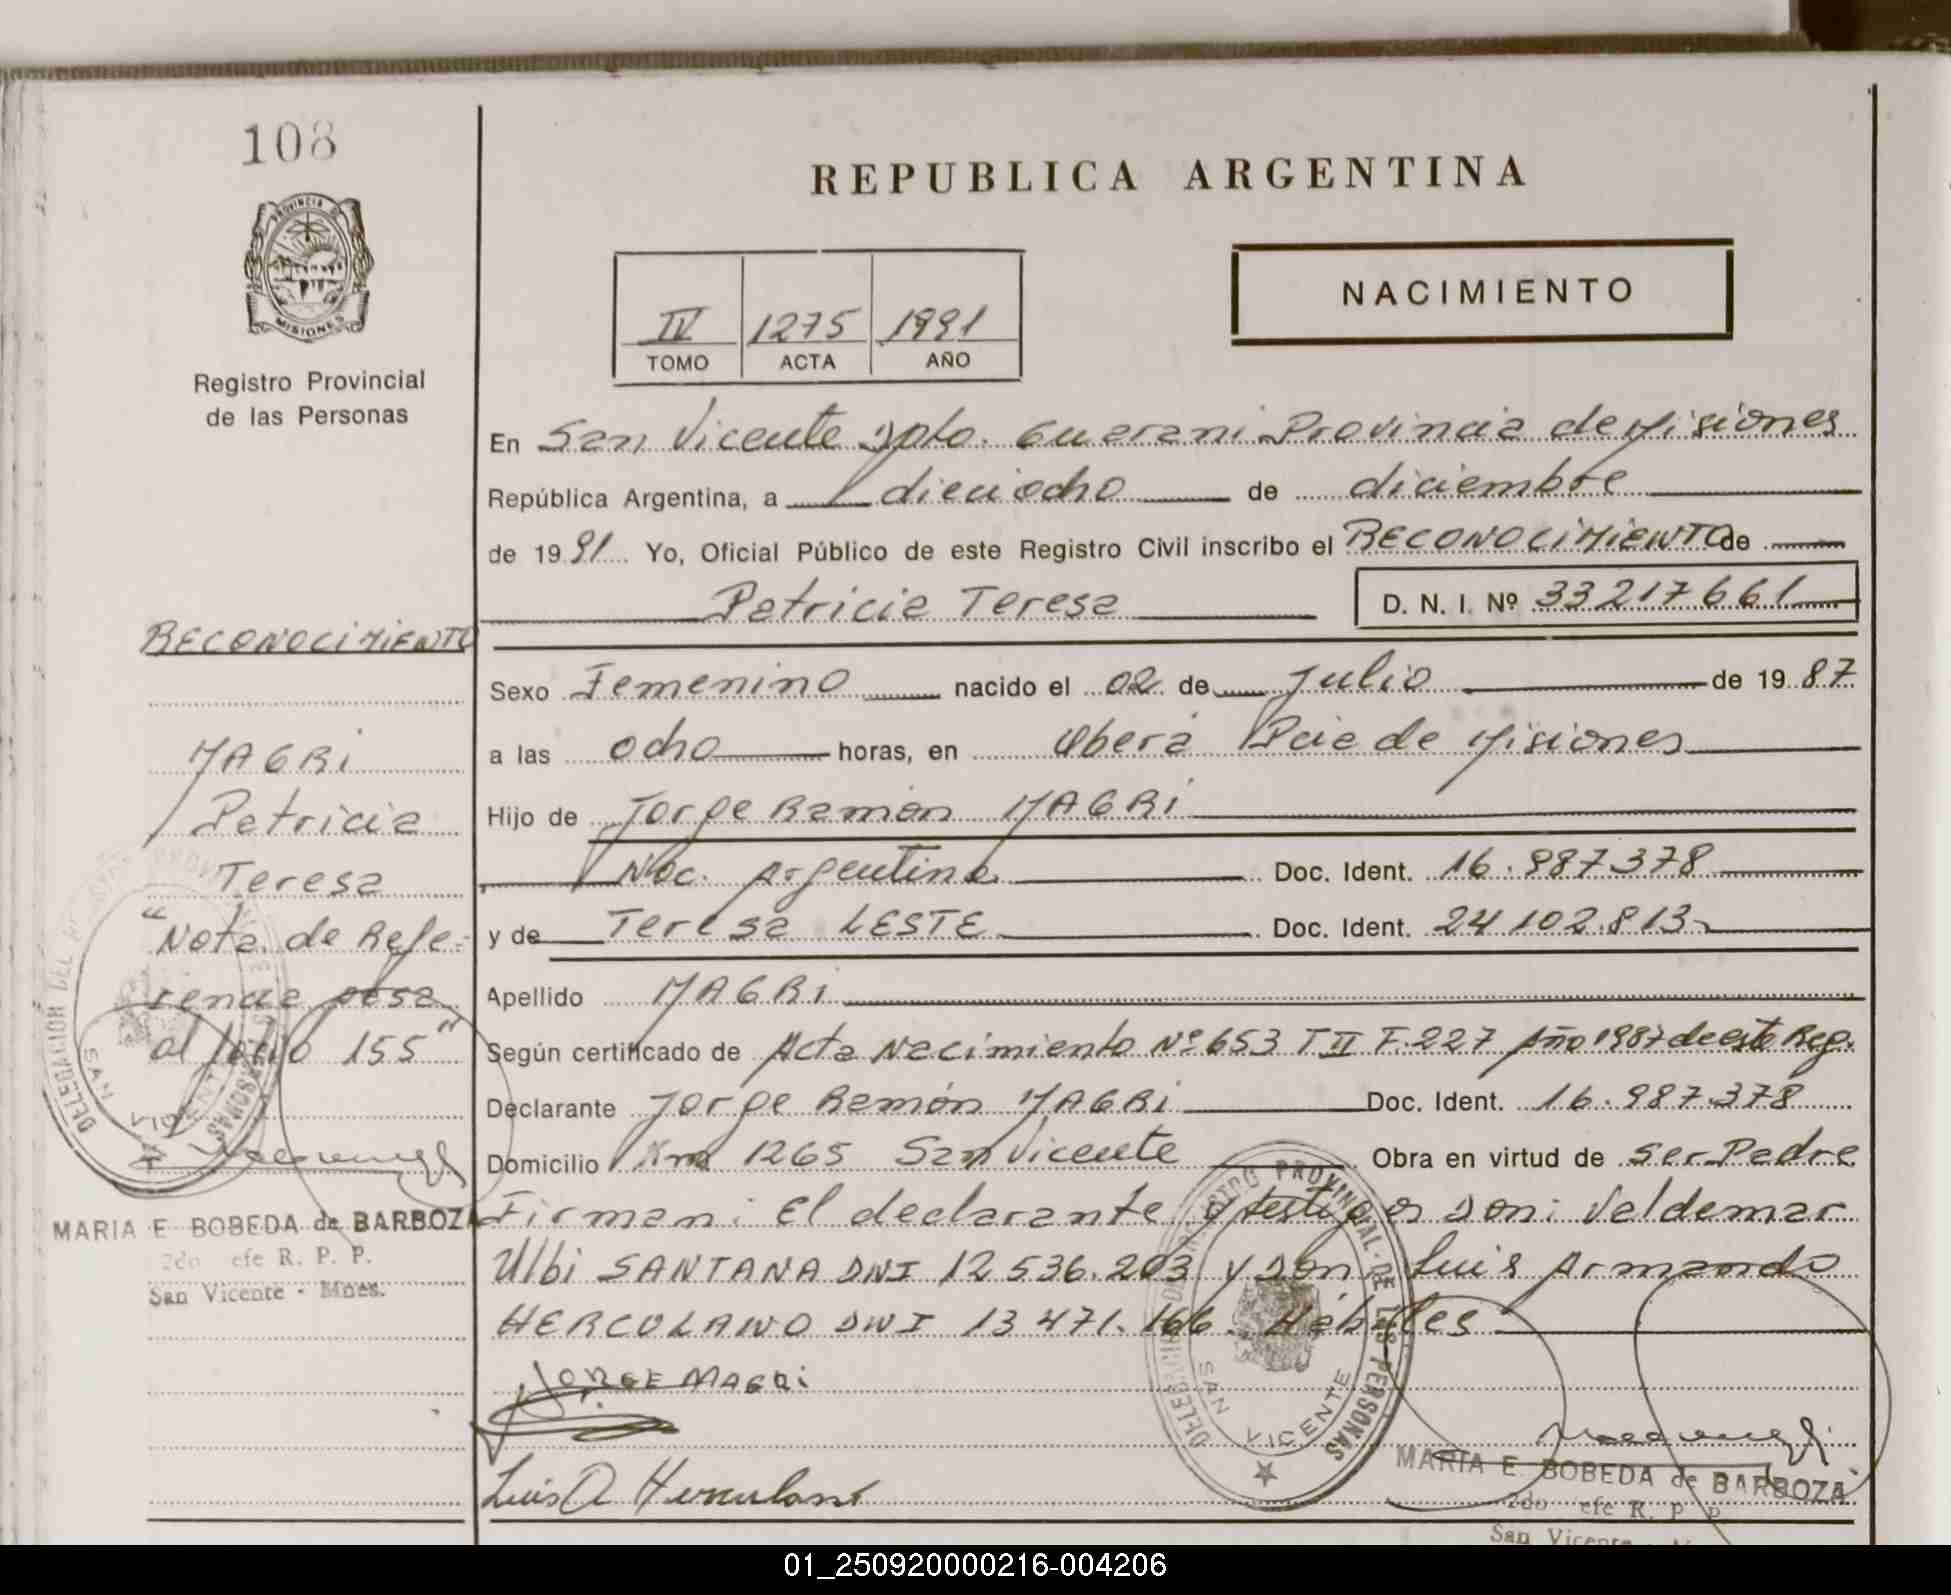 108
REPUBLICA ARGENTINA
PROVINCIA DE
MISIONES
NACIMIENTO
IV 1275 1991
TOMO ACTA AÑO
Registro Provincial
de las Personas
En San Vicente Dpto. Guarani Provincia de Misiones
República Argentina, a dieciocho de diciembre
de 1991 Yo, Oficial Público de este Registro Civil inscribo el RECONOCIMIENTO de
Patricia Teresa D. N. I. Nº 33217661
RECONOCIMIENTO
Sexo Femenino nacido el 02 de Julio de 1987
a las ocho horas, en Oberá Pcia de Misiones
MAGRI
Hijo de Jorge Ramón MAGRI
Patricia
Nac. Argentina Doc. Ident. 16.987378
Teresa
y de Teresa LESTE Doc. Ident. 24102.813
"Nota de Refe-
rencia pasa
Apellido MAGRI
al folio 155"
Según certificado de Acta Nacimiento Nº 653 T II F. 227 Año 1987 de este Reg.
Declarante Jorge Ramón MAGRI Doc. Ident. 16.987.378
Domicilio Km 1265 San Vicente Obra en virtud de ser Padre
MARIA E BOBEDA de BARBOZA
2do efe R. P. P.
San Vicente - Mnes.
Firman: El declarante y testigos Don: Valdemar
Ulbi SANTANA DNI 12536.203 y Don Luis Armando
HERCULANO DNI 13471.166. Hábiles
JORGE MAGRI
Luis A Herculano
DELEGACION DEL REGISTRO PROVINCIAL DE LAS PERSONAS
SAN VICENTE
MARIA E BOBEDA de BARBOZA
2do efe R. P P
San Vicente
01_250920000216-004206